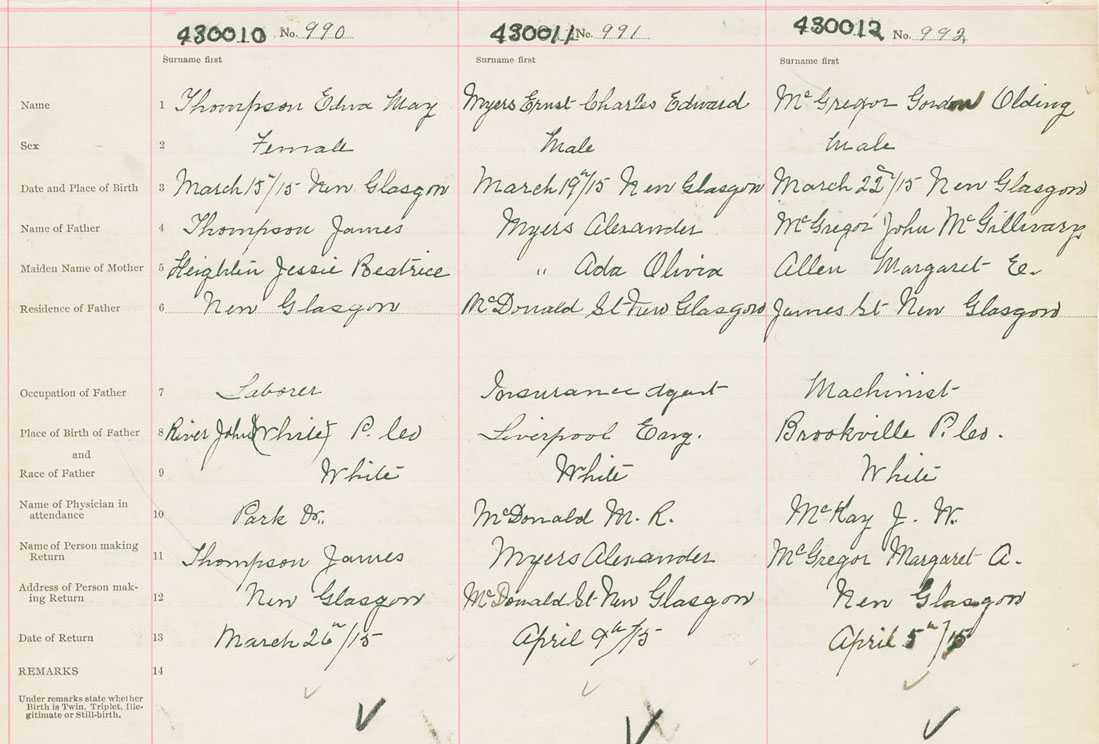 430010 No. 990 430011 No. 991 430012 No. 992
Surname first Surname first Surname first
Name 1 Thompson Edna May Myers Ernst Charles Edward McGregor Gordon Olding
Sex 2 Female Male Male
Date and Place of Birth 3 March 15"/15 New Glasgow March 19"/15 New Glasgow March 22"/15 New Glasgow
Name of Father 4 Thompson James Myers Alexander McGregor John McGillivary
Maiden Name of Mother 5 Heightin Jessie Beatrice " Ada Olivia Allen Margaret E.
Residence of Father 6 New Glasgow McDonald St New Glasgow James St New Glasgow
Occupation of Father 7 Laborer Insurance Agent Machinist
Place of Birth of Father 8 River John (White) P. Co Liverpool Eng. Brookville P. Co.
and
Race of Father 9 White White White
Name of Physician in
attendance 10 Park Dr. McDonald M. R. McKay J. W.
Name of Person making
Return 11 Thompson James Myers Alexander McGregor Margaret A.
Address of Person mak-
ing Return 12 New Glasgow McDonald St New Glasgow New Glasgow
Date of Return 13 March 26"/15 April 9th/15 April 5"/15
REMARKS 14
Under remarks state whether
Birth is Twin, Triplet, Ille-
gitimate or Still-birth.